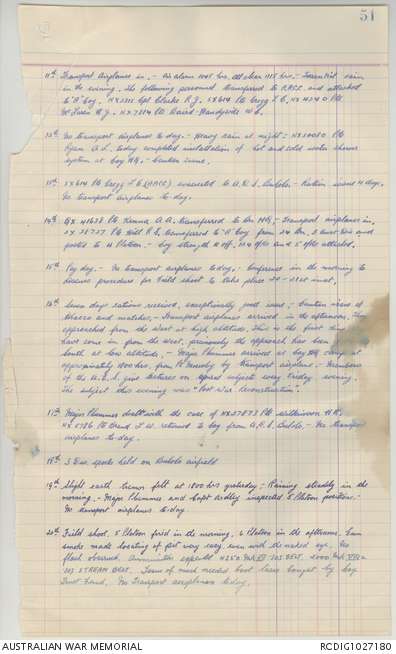 51
11th Transport Airplanes in. - Air alarm 1045 hrs. All clear 1115 hrs. - Torrential rain
in the evening. The following personnel transferred to AASC and attached
to "A" Coy. Cpl Clarke R.J. SX614 Pte Gregg L.E. Pte
W.J. Pte Baird-Handyside W.G.
12th No transport airplanes to-day. - Heavy rain at night: Pte
Ryan A.L. today completed installation of hot and cold water shower
system at Coy HQ. - Canteen issue.
13th SX614 Pte Gregg L E (AASC) evacuated to A.D.S. - Ration issue 4 days.
No transport airplanes to-day.
14th QX 41638 Pte Kenna A.A. transferred to Bn HQ; - Transport airplanes in.
Pte Hill R.S. transferred to "A" Coy from 24 Bn. and
posted to Platoon. - Coy strength 4 off. and 5 O/Rs attached.
15th Pay day. - No transport airplanes today. - Conference in the morning to
discuss procedure for field shoot to take place 20-21st inst.
16th Seven days rations received, exceptionally good issue; - Canteen issue of
tobacco and matches. - Transport airplanes arrived in the afternoon. They
approached from the West at high altitude. This is the first time
have come in from the west, previously the approach has been
South at low altitude. - Major Plummer arrived at Coy HQ camp at
approximately 1800 hrs. from Pt Moresby by transport airplane - Members
of the give lectures on agreed subjects every Friday evening.
The subject this evening was "Post War Reconstruction".
17th Major Plummer dealt with the case of Pte Wilkinson H.R;
Pte L W. returned to Coy from A.D.S. - No transport
airplanes to-day.
18th 3 Div. sports held on airfield
19th Slight earth tremor felt at 1800 hrs yesterday; - Raining steadily in the
morning. - Major Plummer and Capt Ardley inspected 5 Platoon positions. -
No transport airplanes to-day
20th Field shoot. 5 Platoon fired in the morning, 6 Platoon in the afternoon. Gun
smoke made locating of pit very easy, even with the naked eye. No
flash observed. Ammunition expended 4250 Mk VII .303 BELT. 2000 Mk VIII z
.303 STREAM BELT. Issue of much needed boot laces bought by Coy
Trust Fund. No Transport airplanes today.
AUSTRALIAN WAR MEMORIAL
RCDIG1027180